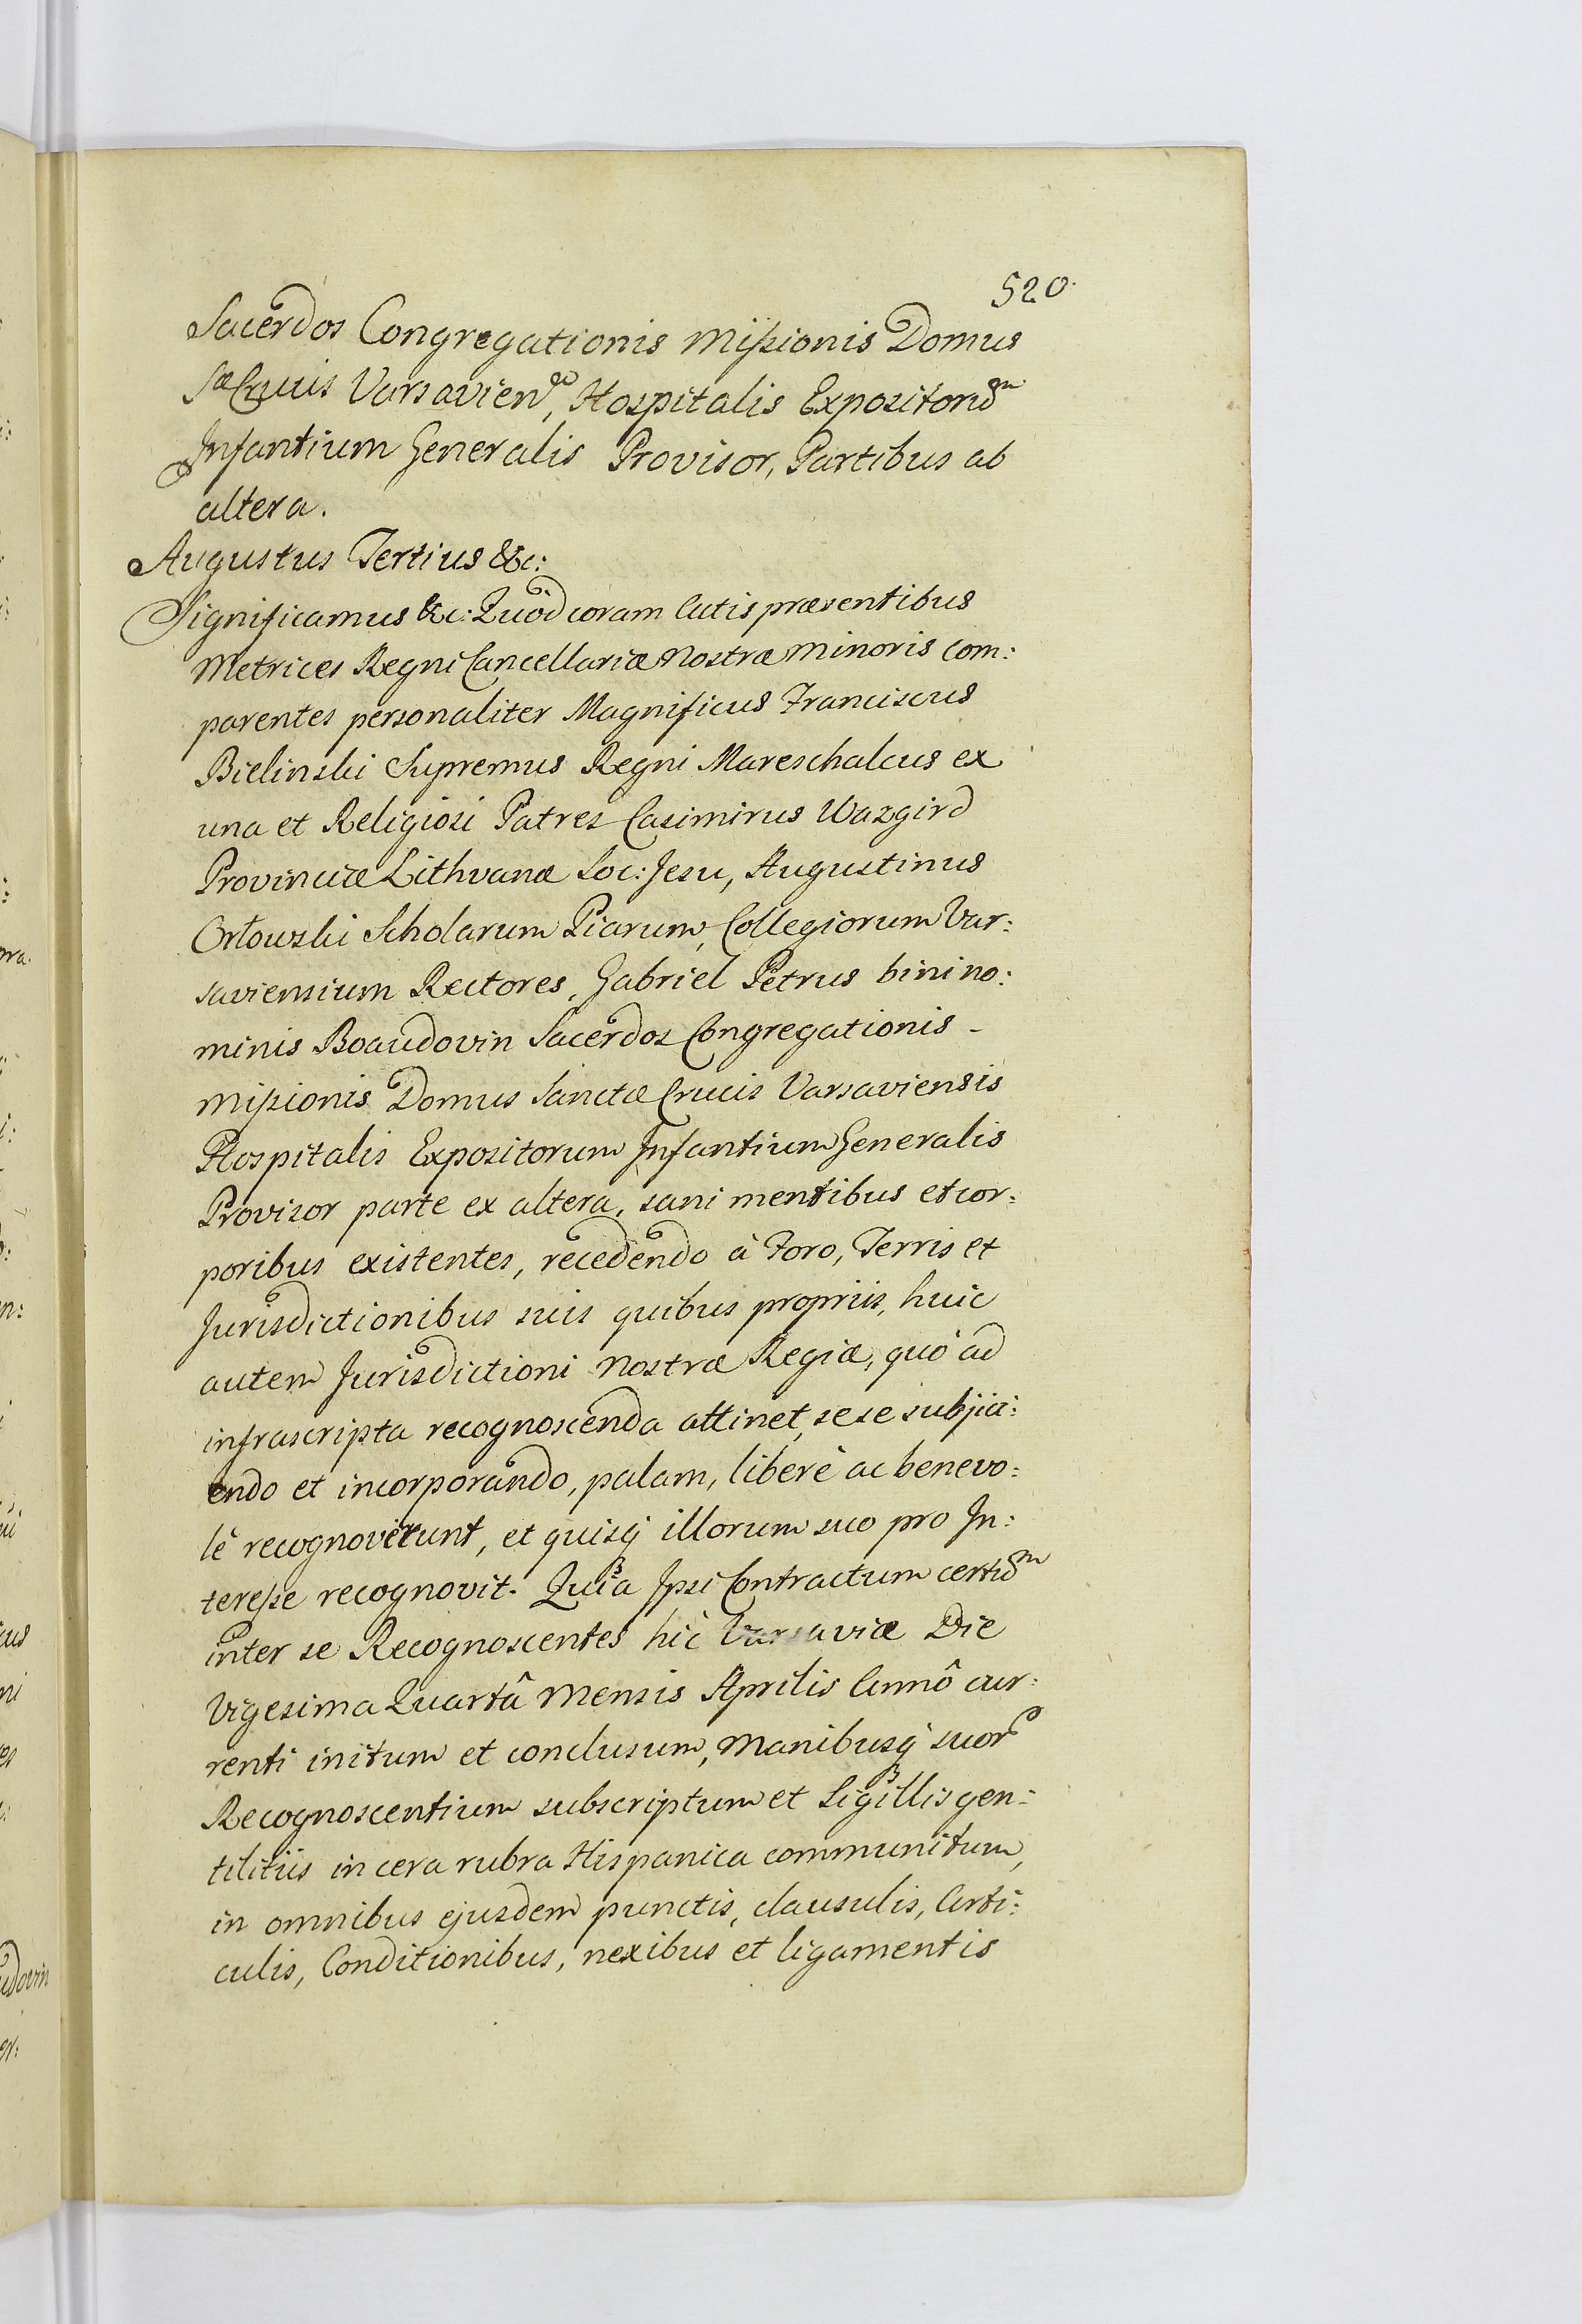 520.
Sacerdos Congregationis Missionis Domus
Sæ Crucis Varsavien, Hospitalis Expositorum
Infantium Generalis Provisor, Partibus ab
altera.
Augustus Tertius &c:
Significamus &c: Quod coram Actis præsentibus
Metrices Regni Cancellariæ Nostræ Minoris Com:
parentes personaliter Magnificus Franciscus
Bielinski Supremus Regni Mareschalcus ex
una et Religiosi Patres Casimirus Wazgird
Provinciæ Lithvanæ Soc: Jesu, Augustinus
Orłowski Scholarum Piarum, Collegiorum Var:
saviensium Rectores, Gabriel Petrus bini no:
minis Boaudovin Sacerdos Congregationis -
Missionis Domus Sanctæ Crucis Varsaviensis
Hospitalis Expositorum Infantium Generalis
Provisor parte ex altera, sani mentibus et cor:
poribus existentes, recedendo à Foro, Terris et
Jurisdictionibus suis quibus propriis, huic
autem Jurisdictioni Nostræ Regiæ, quò ad
infrascripta recognoscenda attinet, sese subjici:
endo et incorporando, palam, liberè ac benevo:
lè recognoverunt, et quisq illorum suo pro In:
teresse recognovit. Quia Ipsi Contractum certum
inter se Recognoscentes hic Varsaviæ Die
Vigesima Quartâ Mensis Aprilis Annô cur:
renti initum et conclusum, Manibusq suor
Recognoscentium subscriptum et Sigillis gen:
tilitiis in cera rubra Hispanica communitum,
in omnibus ejusdem punctis, clausulis, Arti:
culis, Conditionibus, nexibus et ligamentis